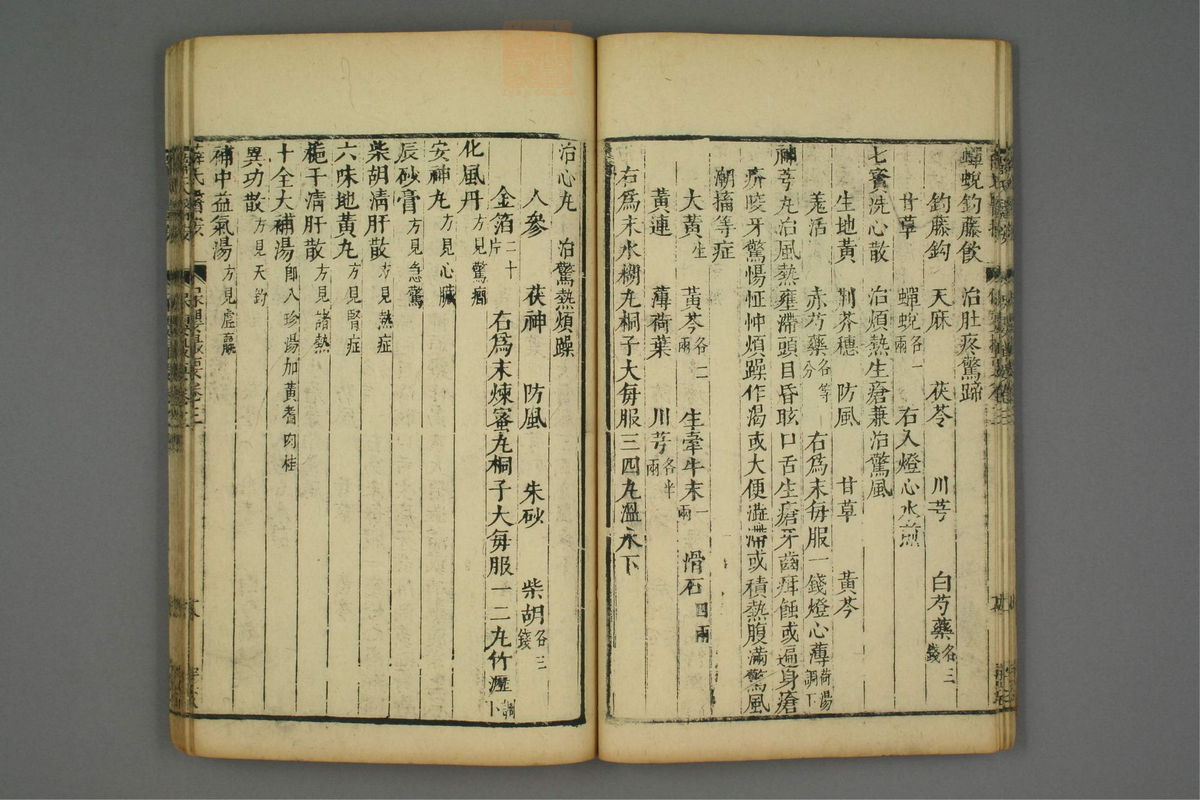 蟬蛻釣藤飲 治肚疼驚啼
釣藤鈎 天麻 茯苓 川芎 白芍藥各三錢
甘草 蟬蛻各一兩 右入燈心水煎
七寶洗心散 治煩熱生瘡兼治驚風
生地黃 荆芥穗 防風 甘草 黃芩
羗活 赤芍藥各等分 右爲末每服一錢燈心薄荷湯調下
神芎丸治風熱壅滯頭目昏眩口舌生瘡牙齒疳蝕或遍身瘡
疥咬牙驚惕怔忡煩躁作渴或大便澁滯或積熱腹滿驚風
潮搐等症
大黃生 黃芩各二兩 生牽牛末一兩 滑石四兩
黃連 薄荷葉 川芎各半兩
右爲末水糊丸桐子大每服三四丸溫水下
治心丸 治驚熱煩躁
人參 茯神 防風 朱砂 柴胡各三錢
金箔二十片 右爲末煉蜜丸桐子大每服一二丸竹瀝調下
化風丹方見驚癇
安神丸方見心臟
辰砂膏方見急驚
柴胡清肝散方見熱症
六味地黃丸方見腎症
梔子清肝散方見諸熱
十全大補湯卽八珍湯加黃耆肉桂
異功散方見天釣
補中益氣湯方見虛羸
薛氏醫按 保嬰撮要卷三